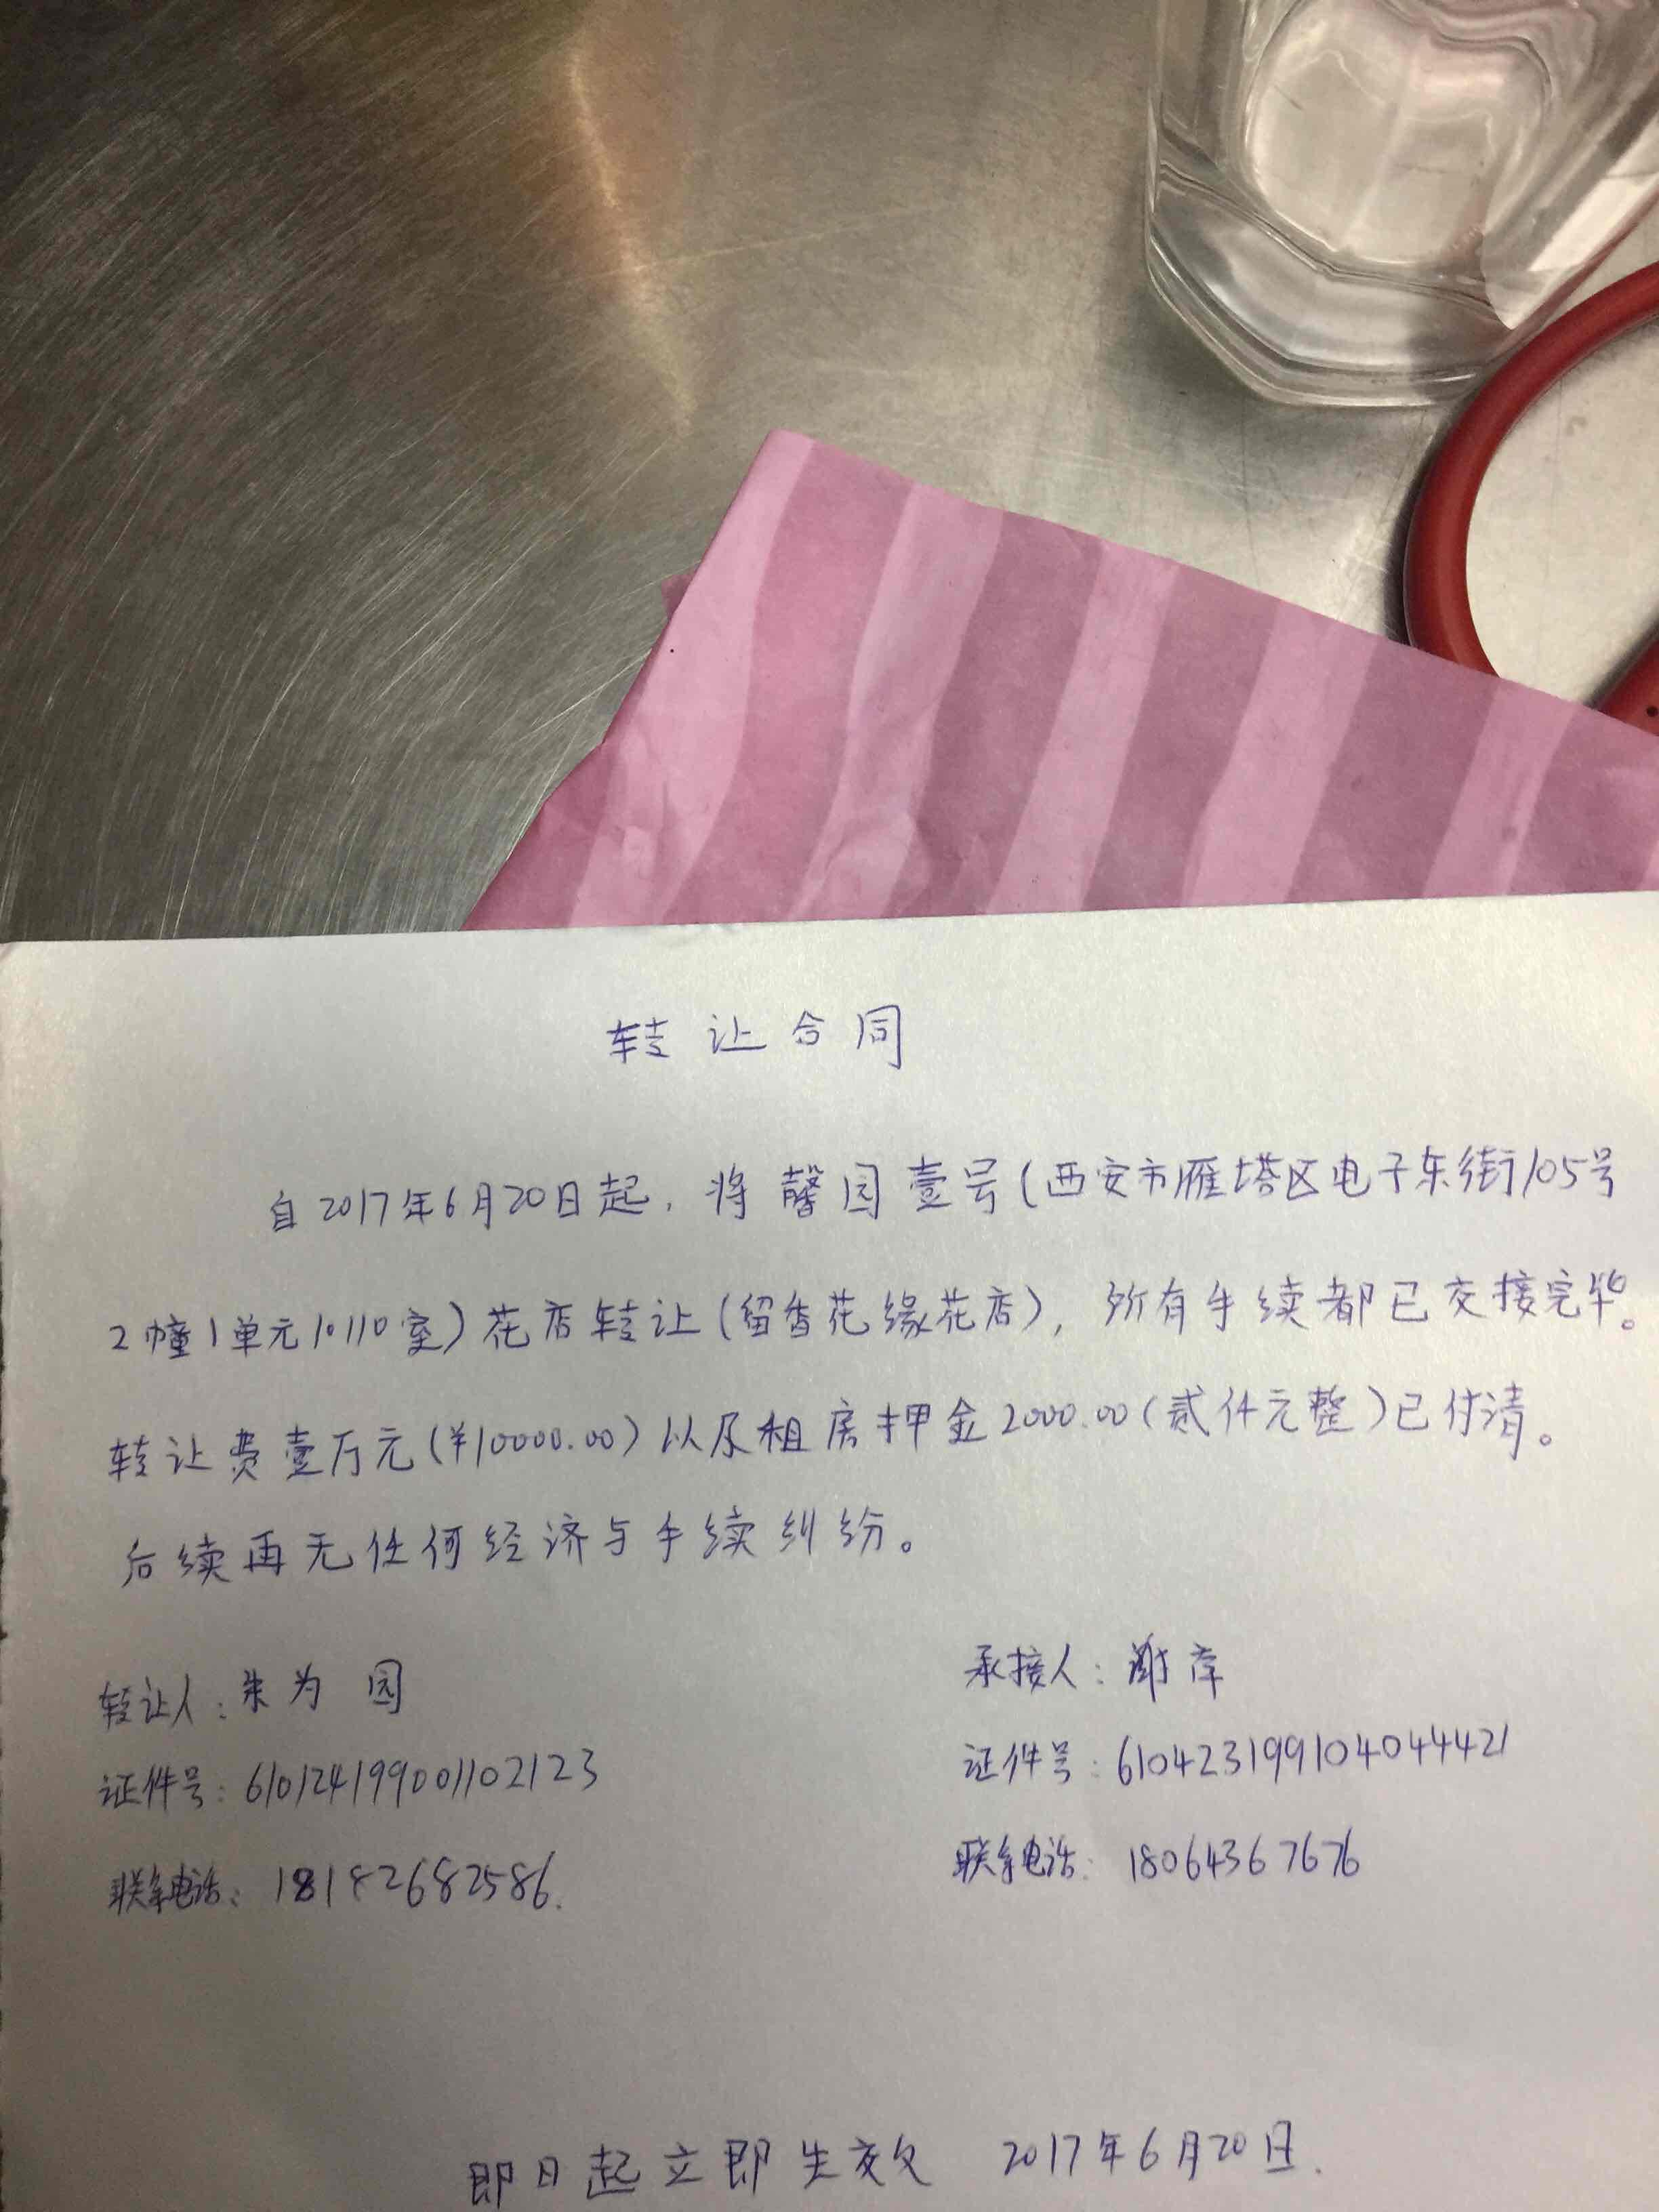 转让合同
自2017年6月20日起，将馨园壹号(西安市雁塔区电子东街105号
2幢1单元10110室)花店转让(留香花缘花店)，所有手续都已交接完毕。
转让费壹万元(¥10000.00)以及租房押金2000.00(贰仟元整)已付清。
后续再无任何经济与手续纠纷。
转让人：朱为园
承接人：谢萍
证件号：610124199001102123
证件号：610423199104044421
联系电话：18182682586.
联系电话：18064367676
即日起立即生效 2017年6月20日.